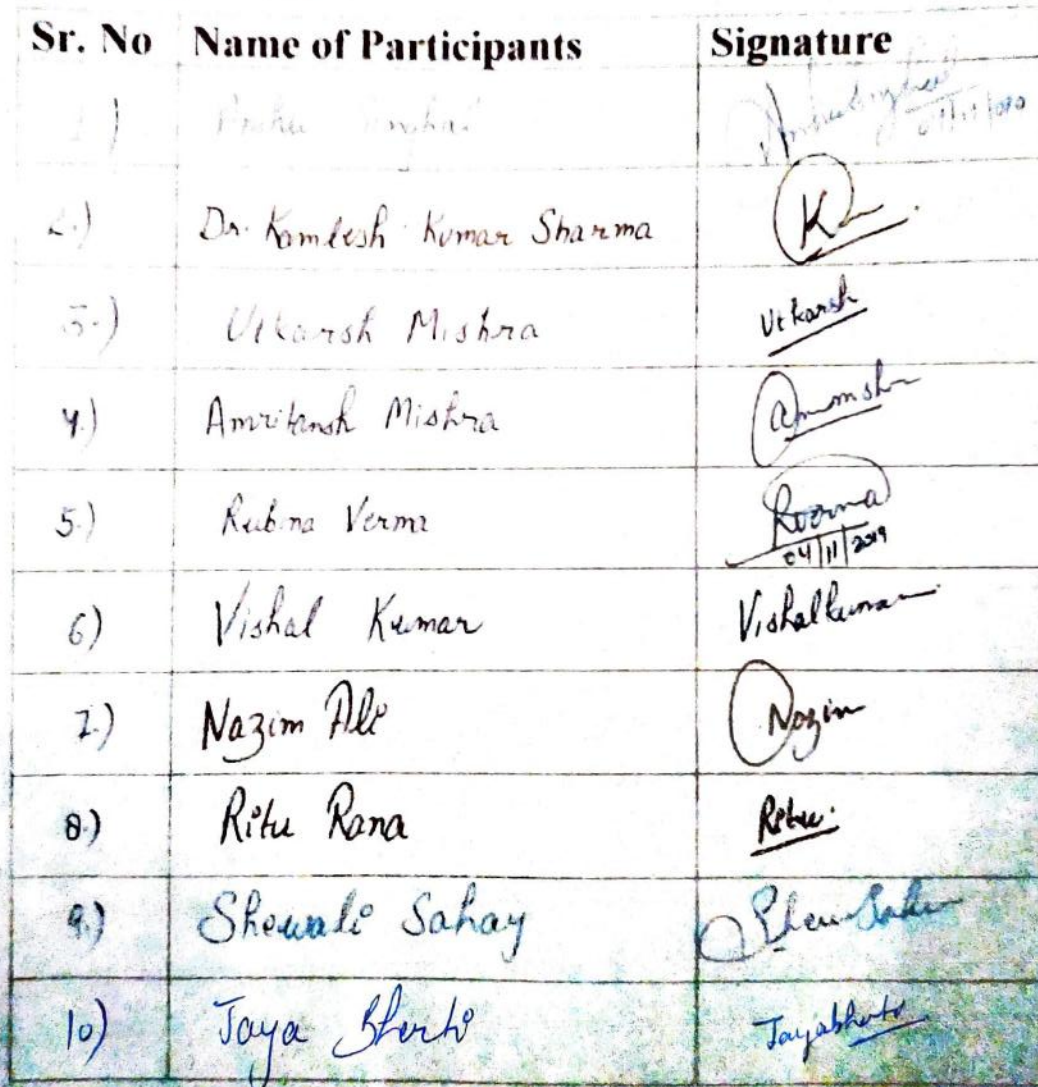 Sr. No Name of Participants Signature
1) Singhal
2.) Dr. Kamlesh Kumar Sharma K
3.) Utkarsh Mishra Utkarsh
4.) Amritansh Mishra
5.) Rubina Verma RVerma
04/11/2019
6) Vishal Kumar Vishalkumar
7.) Nazim Ali Nazim
8.) Ritu Rana Ritu
9.) Shewali Sahay
10) Jaya Bherti Jayabharti